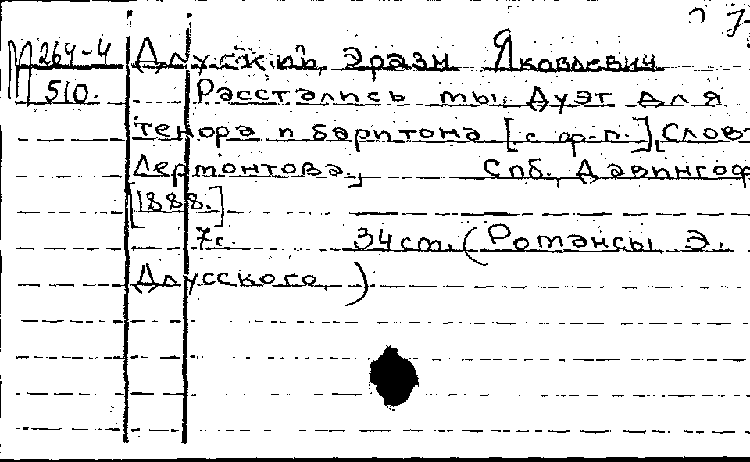 М 264-4 Длусскiй, Эразм Яковлевич
510. Расстались мы. Дуэт для
тенора и баритона [с ф-п.] [Слова
Лермонтова.] Спб., Давингоф
[1888.]
7с. 34 cm. (Романсы Э.
Длусского.)